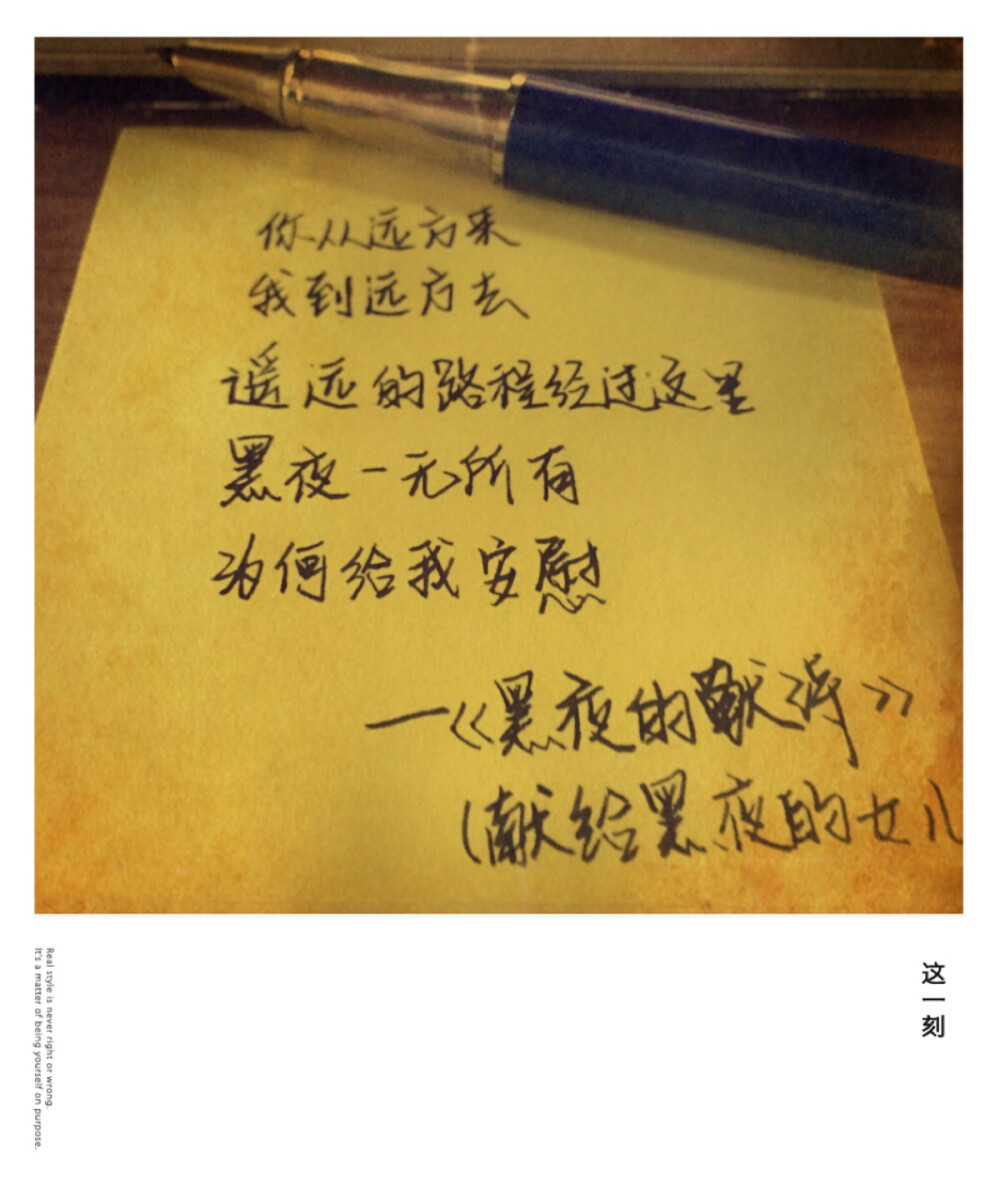 你从远方来
我到远方去
遥远的路程经过这里
黑夜一无所有
为何给我安慰
—《黑夜的献诗》
(献给黑夜的女儿
这一刻
Real style is never right or wrong.
It's a matter of being yourself on purpose.